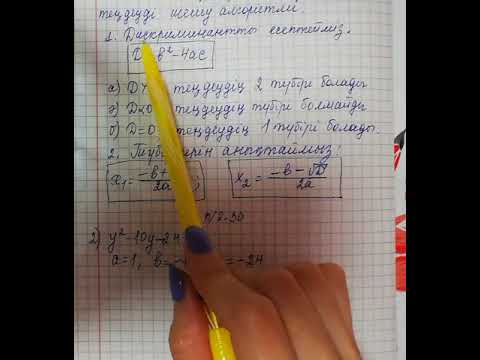 теңдеуді шешу алгоритмі
1. Дискриминантты есептейміз.
D b²-4ac
а) D теңдеудің 2 түбірі болады
ә) D<0 теңдеудің түбірі болмайды
б) D=0 теңдеудің 1 түбірі болады.
2. анықтаймыз:
x₁= -b+ / 2a x₂= -b-√D / 2a
2) y²-10y-24
a=1, b= =-24